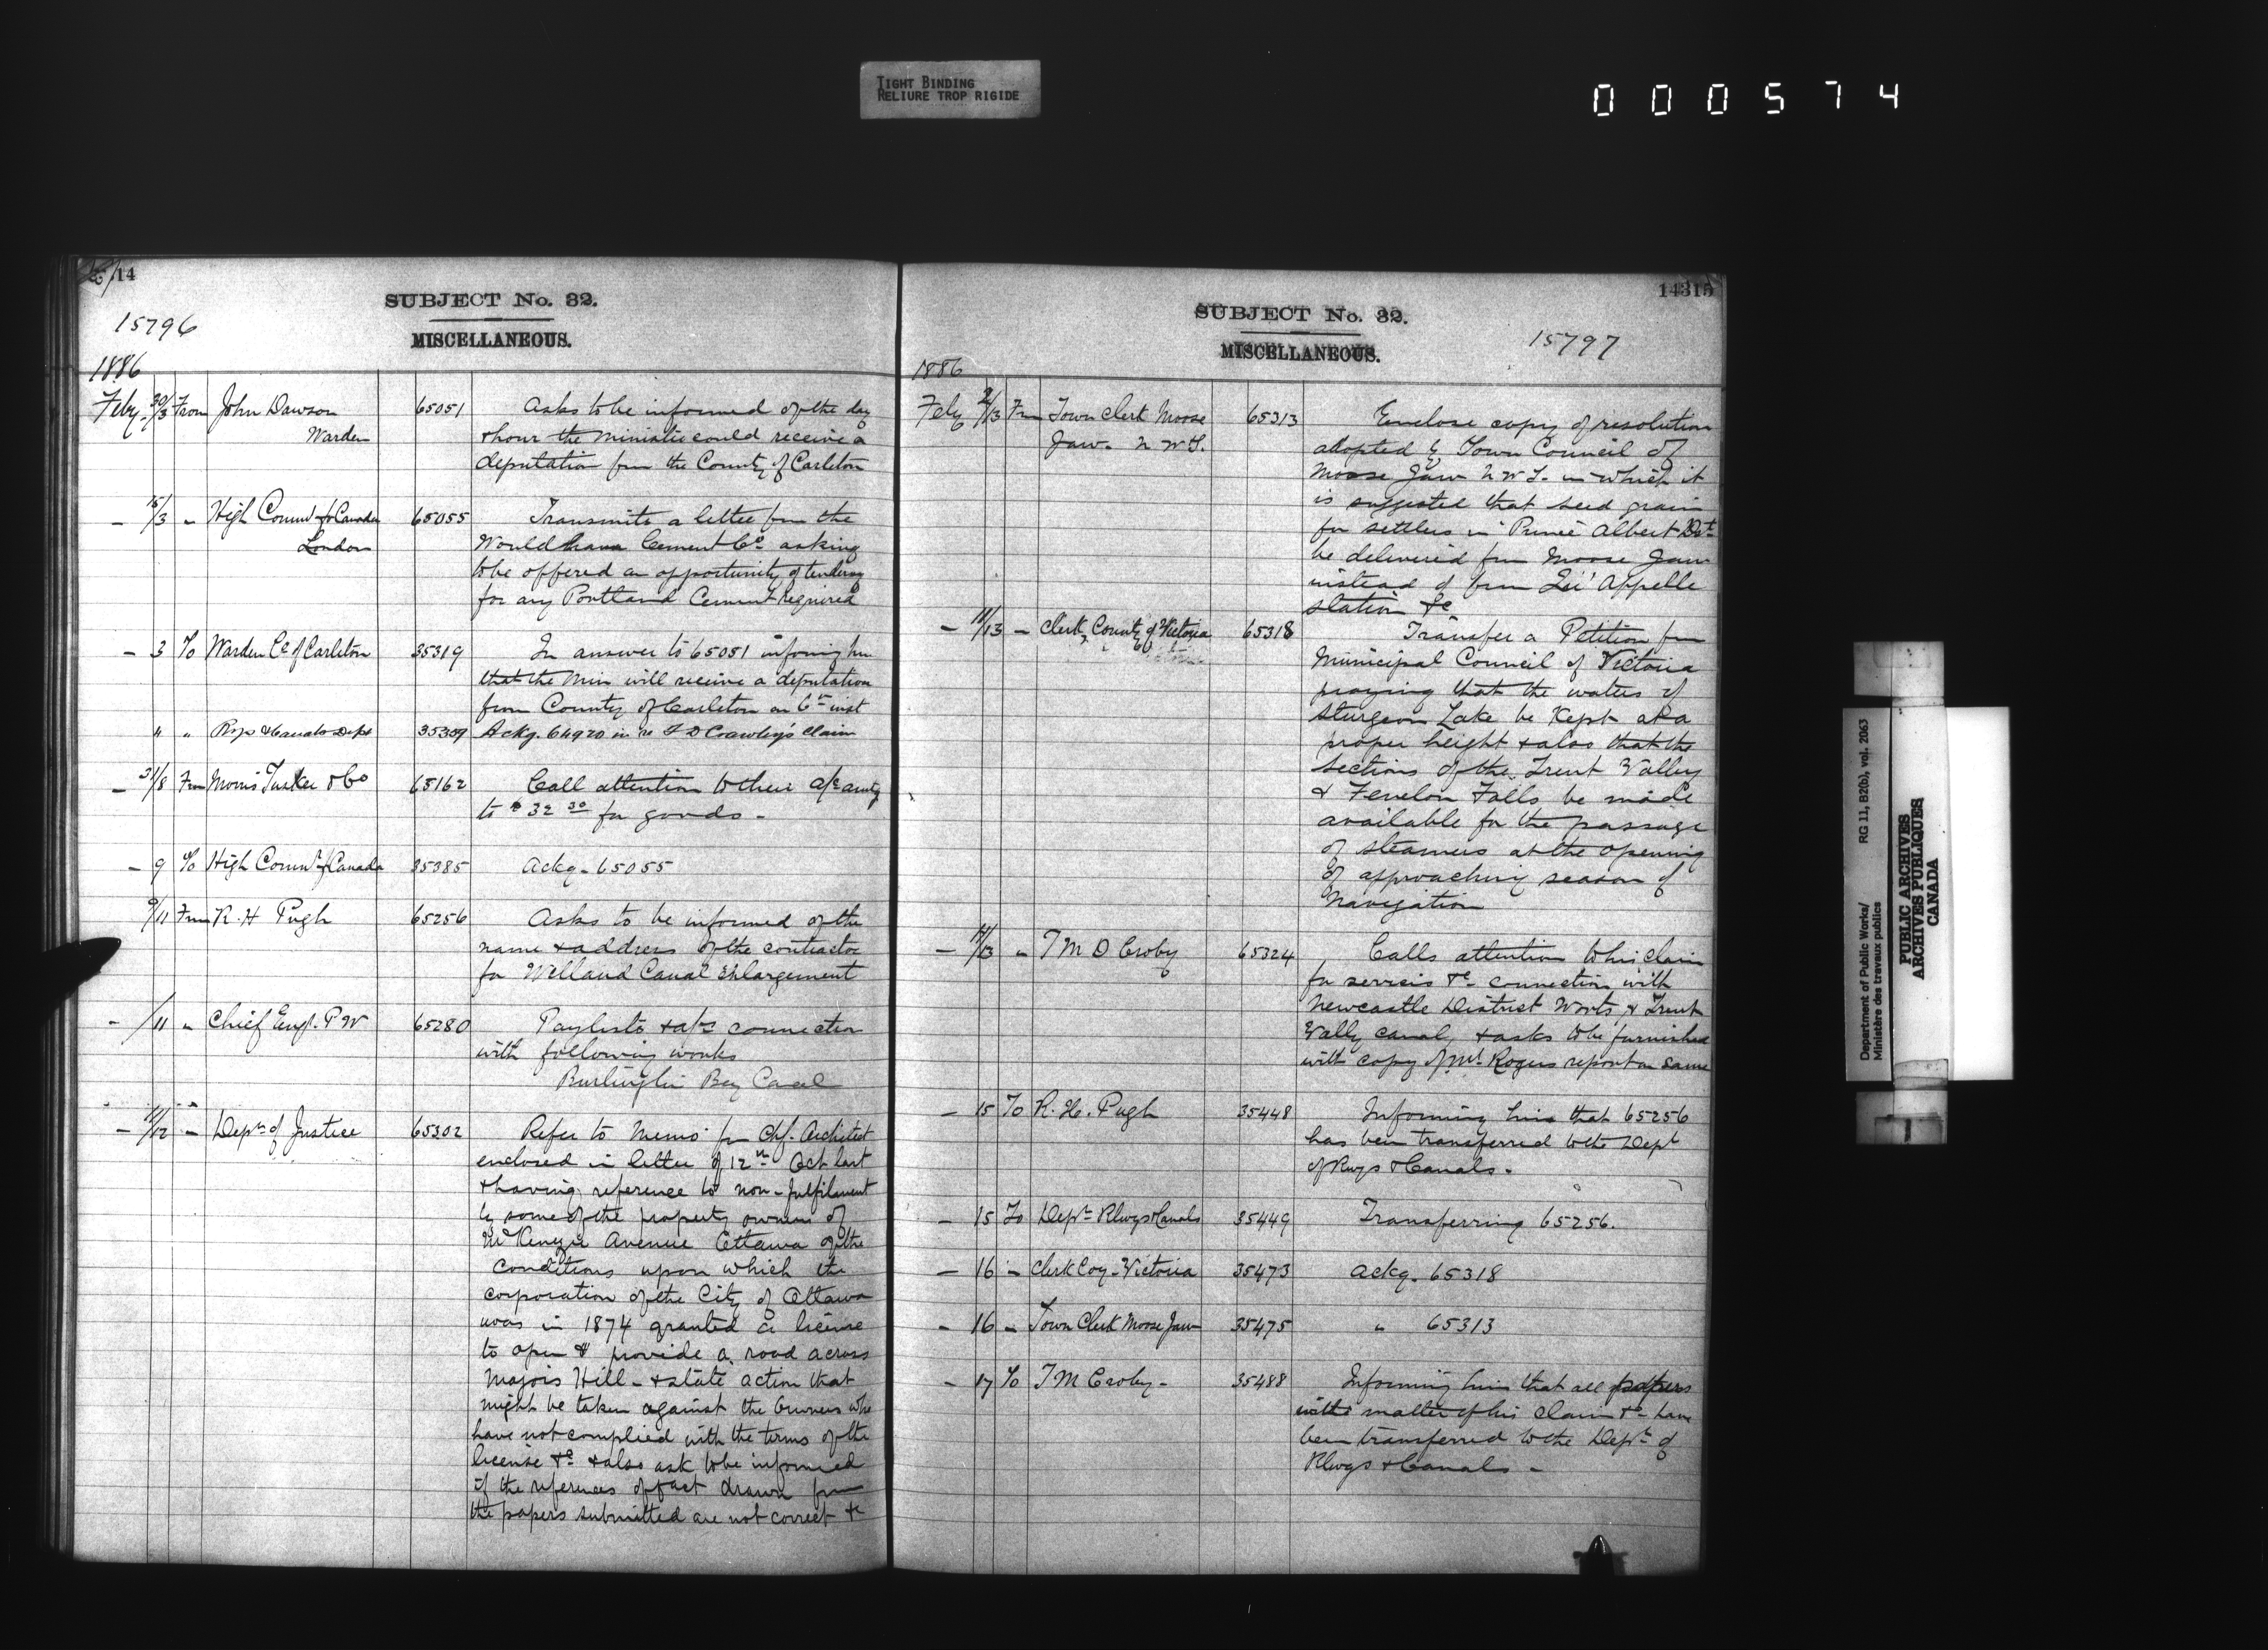 TIGHT BINDING
RELIURE TROP RIGIDE
000574
14
SUBJECT No. 32.
15796
MISCELLANEOUS.
1886
Feby 30/3 From John Dawson 65051 Asks to be informed of the day
Warden & hour the Minister could receive a
deputation from the County of Carleton
- 15/3 " High Commr for Canada 65055 Transmits a letter from the
London Wouldham Cement Co. asking
to be offered an opportunity of tendering
for any Portland Cement required
- 3 To Warden Co. of Carleton 35319 In answer to 65051 informing him
that the Min will receive a deputation
from County of Carleton on 6th inst
" " Rys & Canals Dept 35309 Ackg. 64920 in re F D Crawley's claim
- 31/8 From Morris Tasker & Co 65162 Call attention to their a/c amtg
to $32 30 for goods -
- 9 To High Commr for Canada 35385 Ackg - 65055
9/11 From R. H Pugh 65256 Asks to be informed of the
name & address of the contractor
for Welland Canal Enlargement
- /11 " Chief Engr. P W 65280 Paylists & a/cs connection
with following works
Burlington Bay Canal
- 11/12 " Dept of Justice 65302 Refer to Memo fm Chf. Architect
enclosed in letter of 12th Oct last
& having reference to non-fulfilment
by some of the property owners of
McKenzie Avenue Ottawa of the
conditions upon which the
corporation of the City of Ottawa
was in 1874 granted a license
to open & provide a road across
Majors Hill - & state action that
might be taken against the owners who
have not complied with the terms of the
license &c & also ask to be informed
if the references of fact drawn from
the papers submitted are not correct &c
14315
SUBJECT No. 32.
15797
MISCELLANEOUS.
1886
Feby 2/13 Fm Town Clerk Moose 65313 Enclose copy of resolution
Jaw. N W T. adopted by Town Council of
Moose Jaw N W T. in which it
is suggested that seed grain
for settlers in Prince Albert Dt
be delivered from Moose Jaw
instead of from Qu'Appelle
station &c
- 11/13 - Clerk, County of Victoria 65318 Transfer a Petition from
Municipal Council of Victoria
praying that the waters of
Sturgeon Lake be kept at a
proper height & also that the
sections of the Trent Valley
& Fenelon Falls be made
available for the passage
of steamers at the opening
of approaching season of
Navigation
- 11/13 " T M D Croby 65324 Calls attention to his claim
for services &c connection with
Newcastle District Works & Trent
Vally canal, & asks to be furnished
with copy of Mr. Rogers report on same
- 15 To R. H. Pugh 35448 Informing him that 65256
has been transferred to the Dept
of Rwys & Canals -
- 15 To Dept Rlwys & Canals 35449 Transferring 65256.
- 16 - Clerk Coy - Victoria 35473 Ackg. 65318
- 16 - Town Clerk Moose Jaw 35475 " 65313
- 17 To T M Croby - 35488 Informing him that all papers
in the matter of his claim &c have
been transferred to the Dept of
Rlwys & Canals -
Department of Public Works/ RG 11, B2(b), vol. 2063
Ministère des travaux publics
PUBLIC ARCHIVES
ARCHIVES PUBLIQUES
CANADA